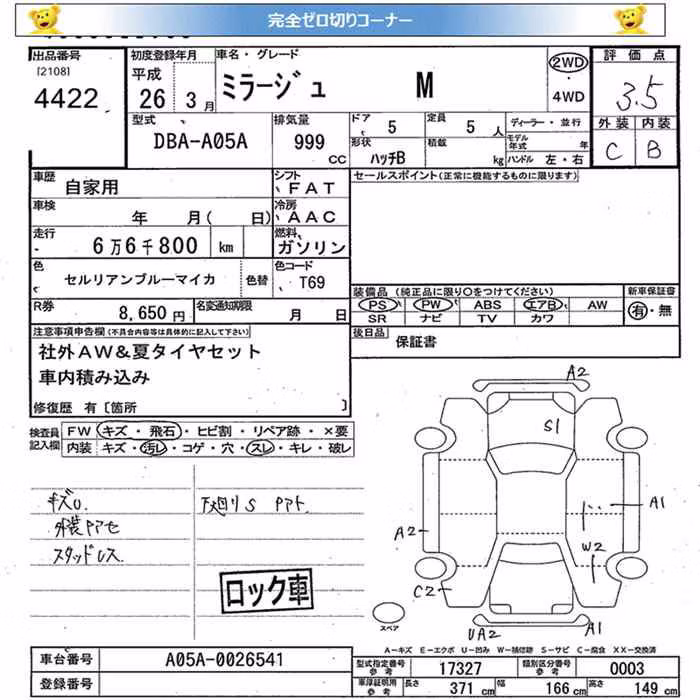 完全ゼロ切りコーナー
出品番号
[2108]
4422
初度登録年月
平成
26 3月
車名・グレード
ミラージュ M
2WD
4WD
評価点
3.5
外装 内装
C B
型式
DBA-A05A
排気量
999
CC
ドア
5
定員
5 人
形状
ハッチB
積載
kg
ディーラー・並行
モデル年式 年
ハンドル 左・右
車歴
自家用
シフト
FAT
車検
年 月( 日)
冷房
AAC
走行
6万6千800 km
燃料
ガソリン
色
セルリアンブルーマイカ
色替
色コード
T69
R券
8,650円
名変通知期限
月 日
セールスポイント(正常に機能するものに限ります)
装備品 (純正品に限り〇をつけてください)
PS PW ABS エアB AW
SR ナビ TV カワ
新車保証書
有・無
後日品
保証書
注意事項申告欄(不具合内容等は具体的に記入して下さい)
社外AW&夏タイヤセット
車内積み込み
修復歴 有〔箇所 〕
検査員記入欄
FW キズ・飛石・ヒビ割・リペア跡・×要
内装 キズ・汚レ・コゲ・穴・スレ・キレ・破レ
キズU
外装Pアセ
スタッドレス
下廻りS Pアト
ロック車
A2
S1
A1
A2
W2
C2
UA2
A1
スペア
A-キズ E-エクボ U-凹み W-補修跡 S-サビ C-腐食 XX-交換済
車台番号
A05A-0026541
登録番号
型式指定番号
参考
17327
類別区分番号
参考
0003
車庫証明用
参考
長さ 371 cm
幅 166 cm
高さ 149 cm